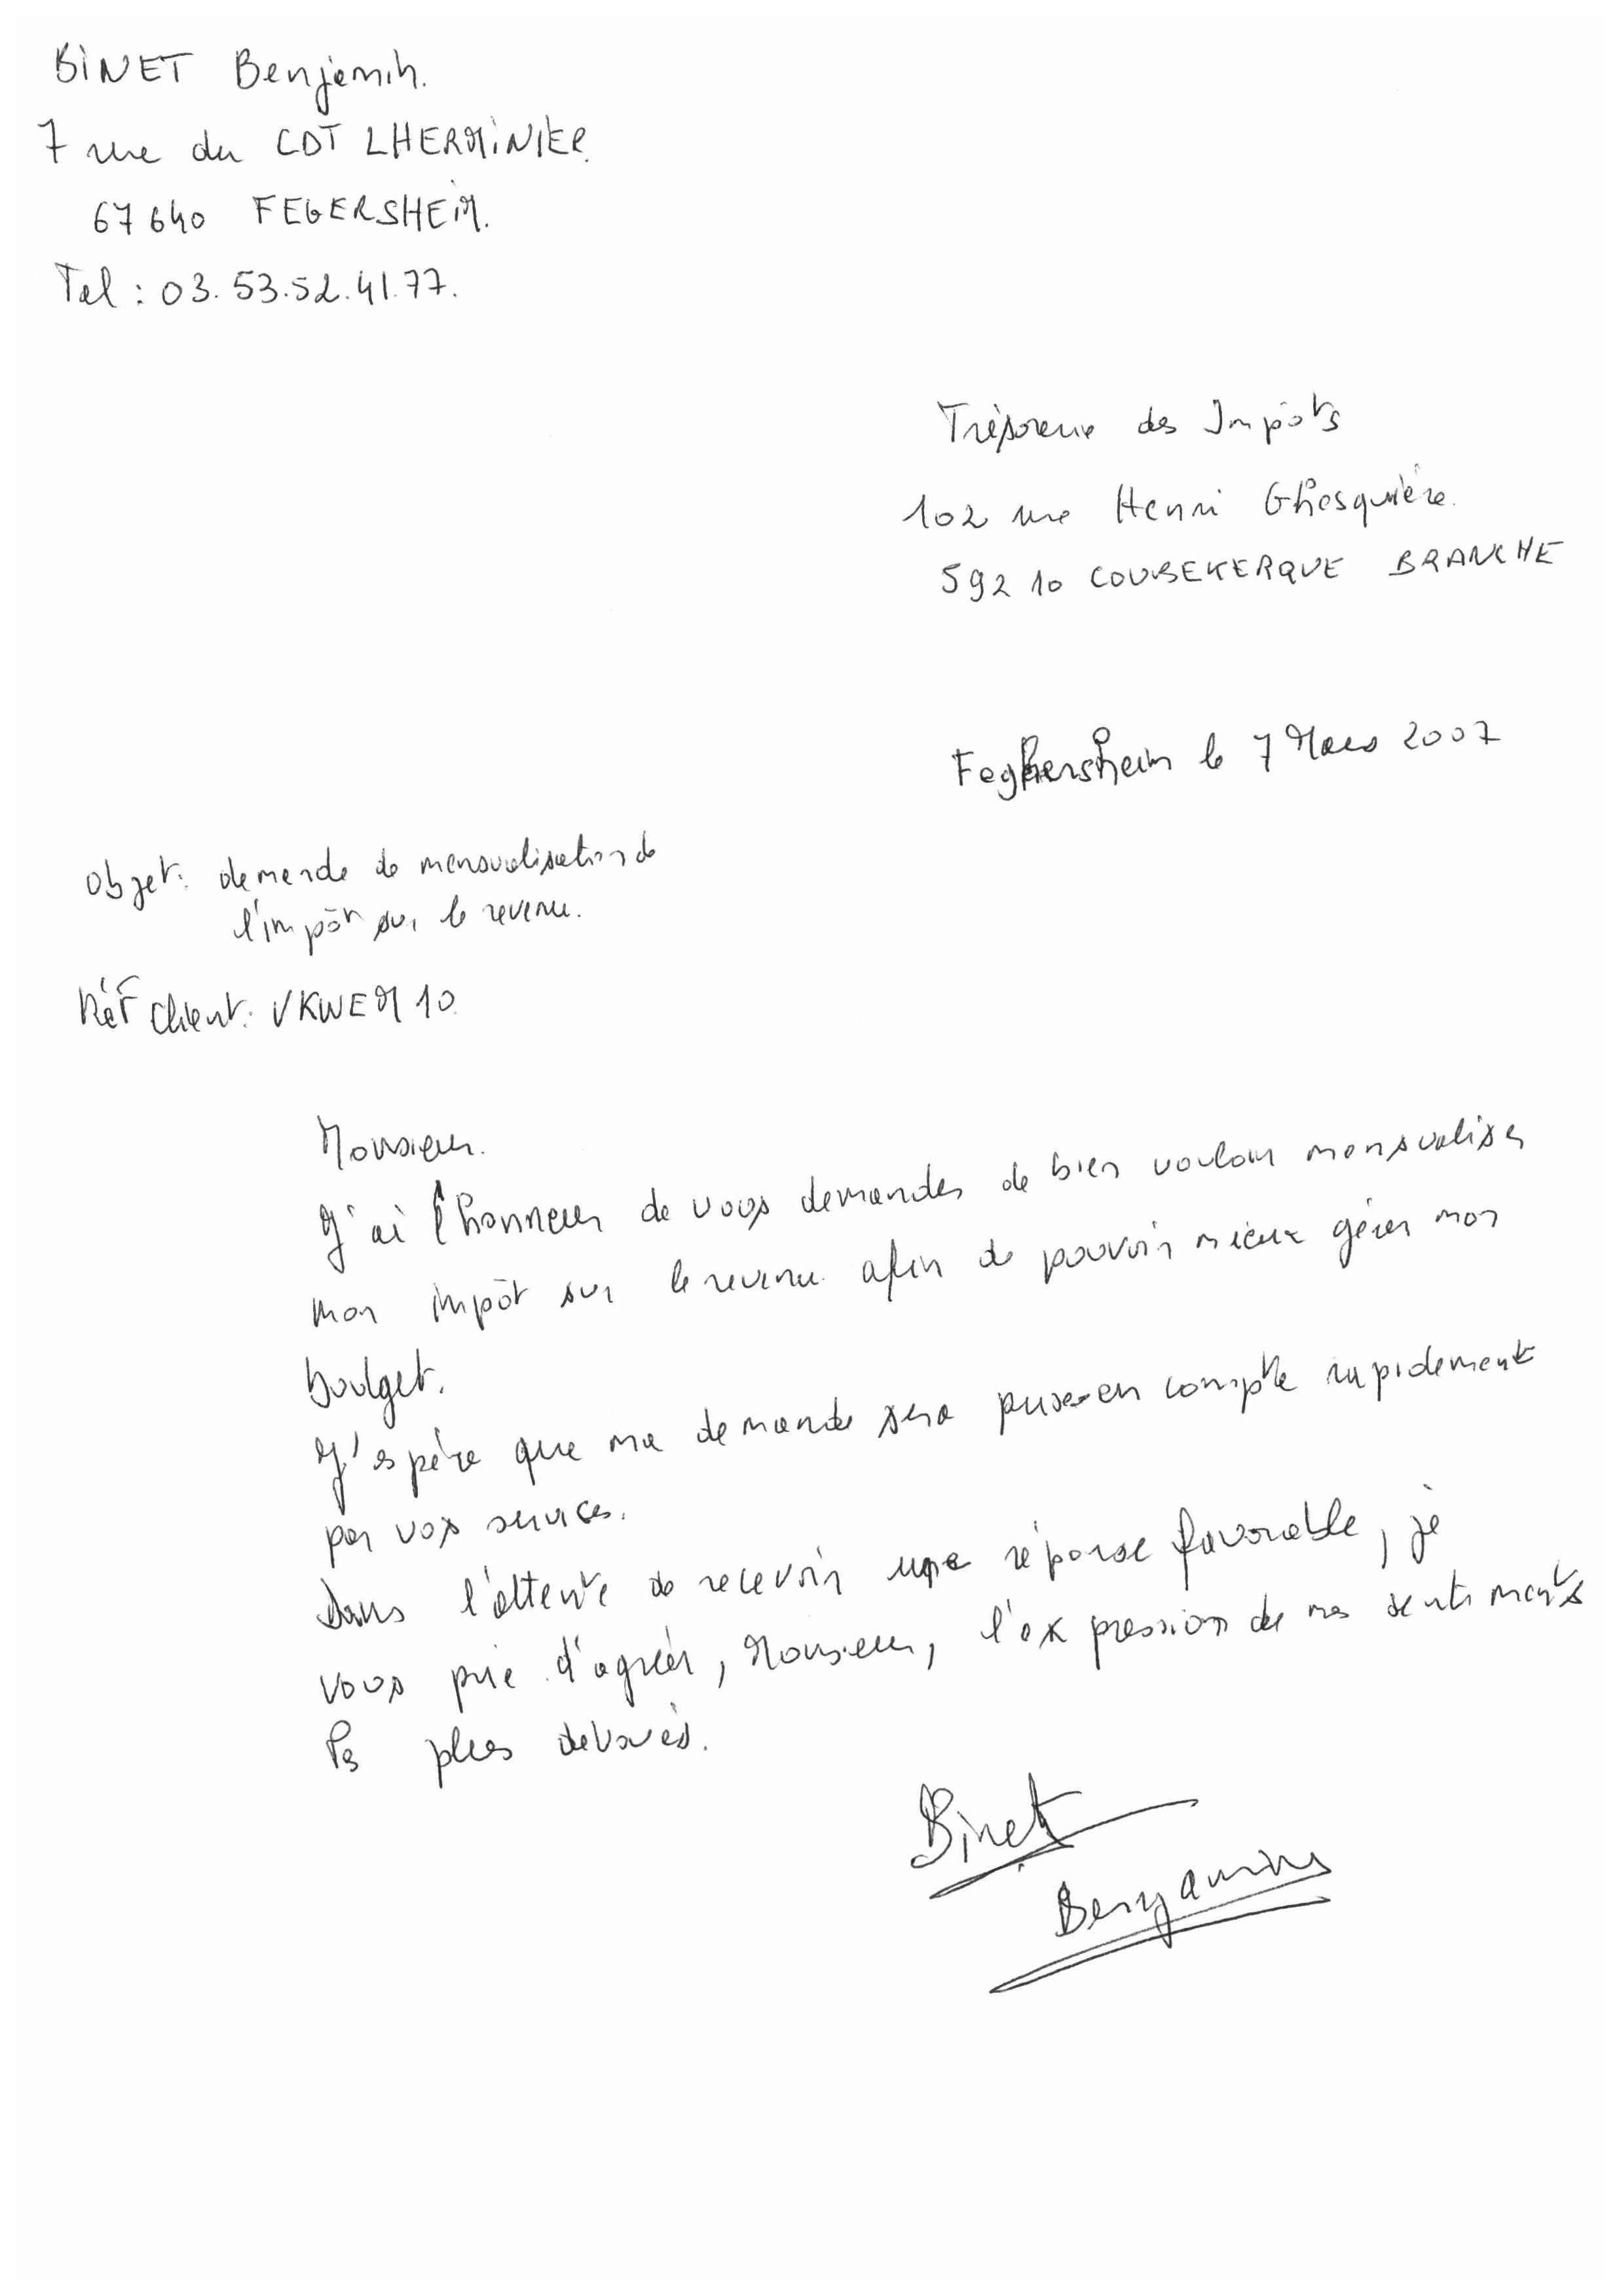 BINET Benjamin.
7 rue du CDT LHERMINIER.
67640 FEGERSHEIM.
Tel : 03.53.52.41.77.
Trésorerie des Impôts
102 rue Henri Ghesquière.
59210 COUDEKERQUE BRANCHE
Feghersheim le 7 Mars 2007
Objet: demande de mensualisation de
l'impôt sur le revenu.
Réf Client: VKWEM10
Monsieur.
J'ai l'honneur de vous demander de bien vouloir mensualiser
mon impôt sur le revenu afin de pouvoir mieux gérer mon
budget.
J'espère que ma demande sera prise en compte rapidement
par vos services.
Dans l'attente de recevoir une réponse favorable, je
vous prie d'agréer, Monsieur, l'expression de mes sentiments
les plus dévoués.
Binet
Benjamin